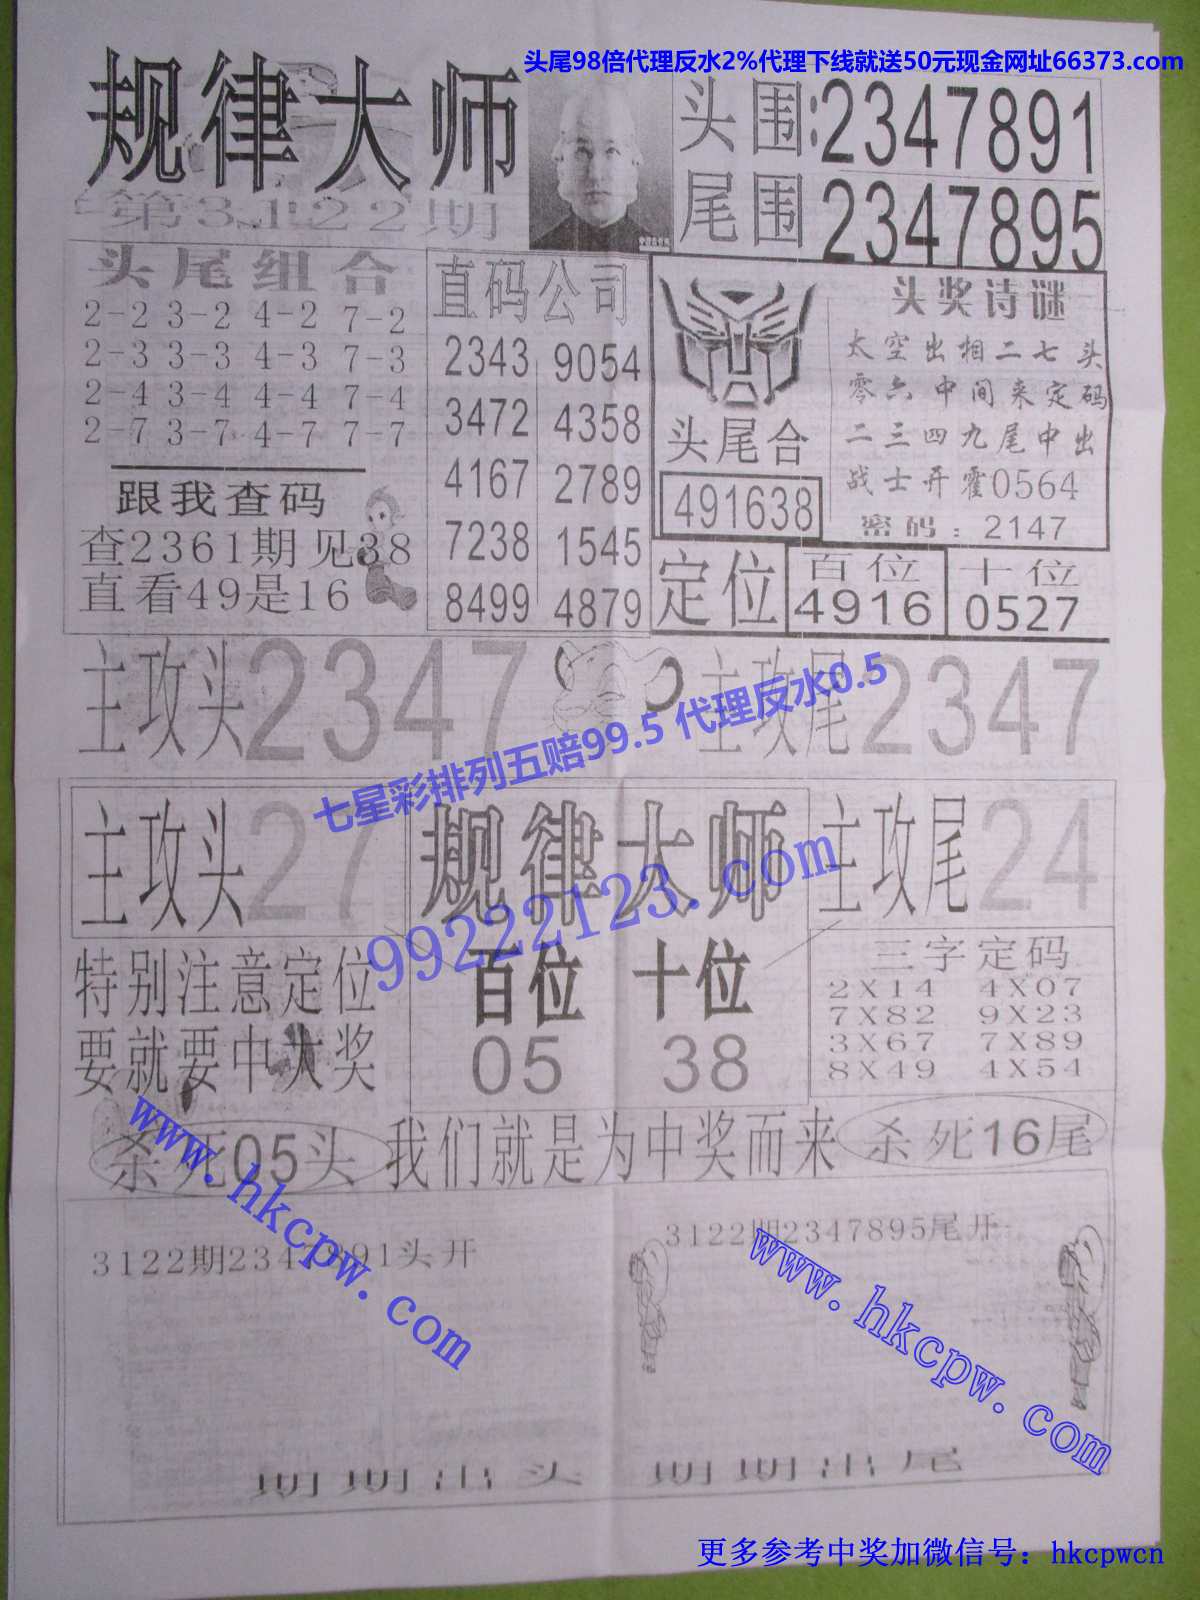 头尾98倍代理反水2%代理下线就送50元现金网址66373.com
规律大师
第3122期
头围:2347891
尾围2347895
头尾组合
2-2 3-2 4-2 7-2
2-3 3-3 4-3 7-3
2-4 3-4 4-4 7-4
2-7 3-7 4-7 7-7
跟我查码
查2361期见38
直看49是16
直码公司
2343 9054
3472 4358
4167 2789
7238 1545
8499 4879
头尾合
491638
头奖诗谜
太空出相二七头
零六中间来定码
二三四九尾中出
战士开霍0564
密码:2147
定位
百位
4916
十位
0527
主攻头2347
主攻尾2347
七星彩排列五赔99.5 代理反水0.5
主攻头27
规律大师
主攻尾24
99222123.com
特别注意定位
要就要中大奖
百位 十位
05 38
三字定码
2X14 4X07
7X82 9X23
3X67 7X89
8X49 4X54
杀死05头
我们就是为中奖而来
杀死16尾
www.hkcpw.com
3122期2347891头开
3122期2347895尾开
www.hkcpw.com
期期出头 期期出尾
更多参考中奖加微信号：hkcpwcn